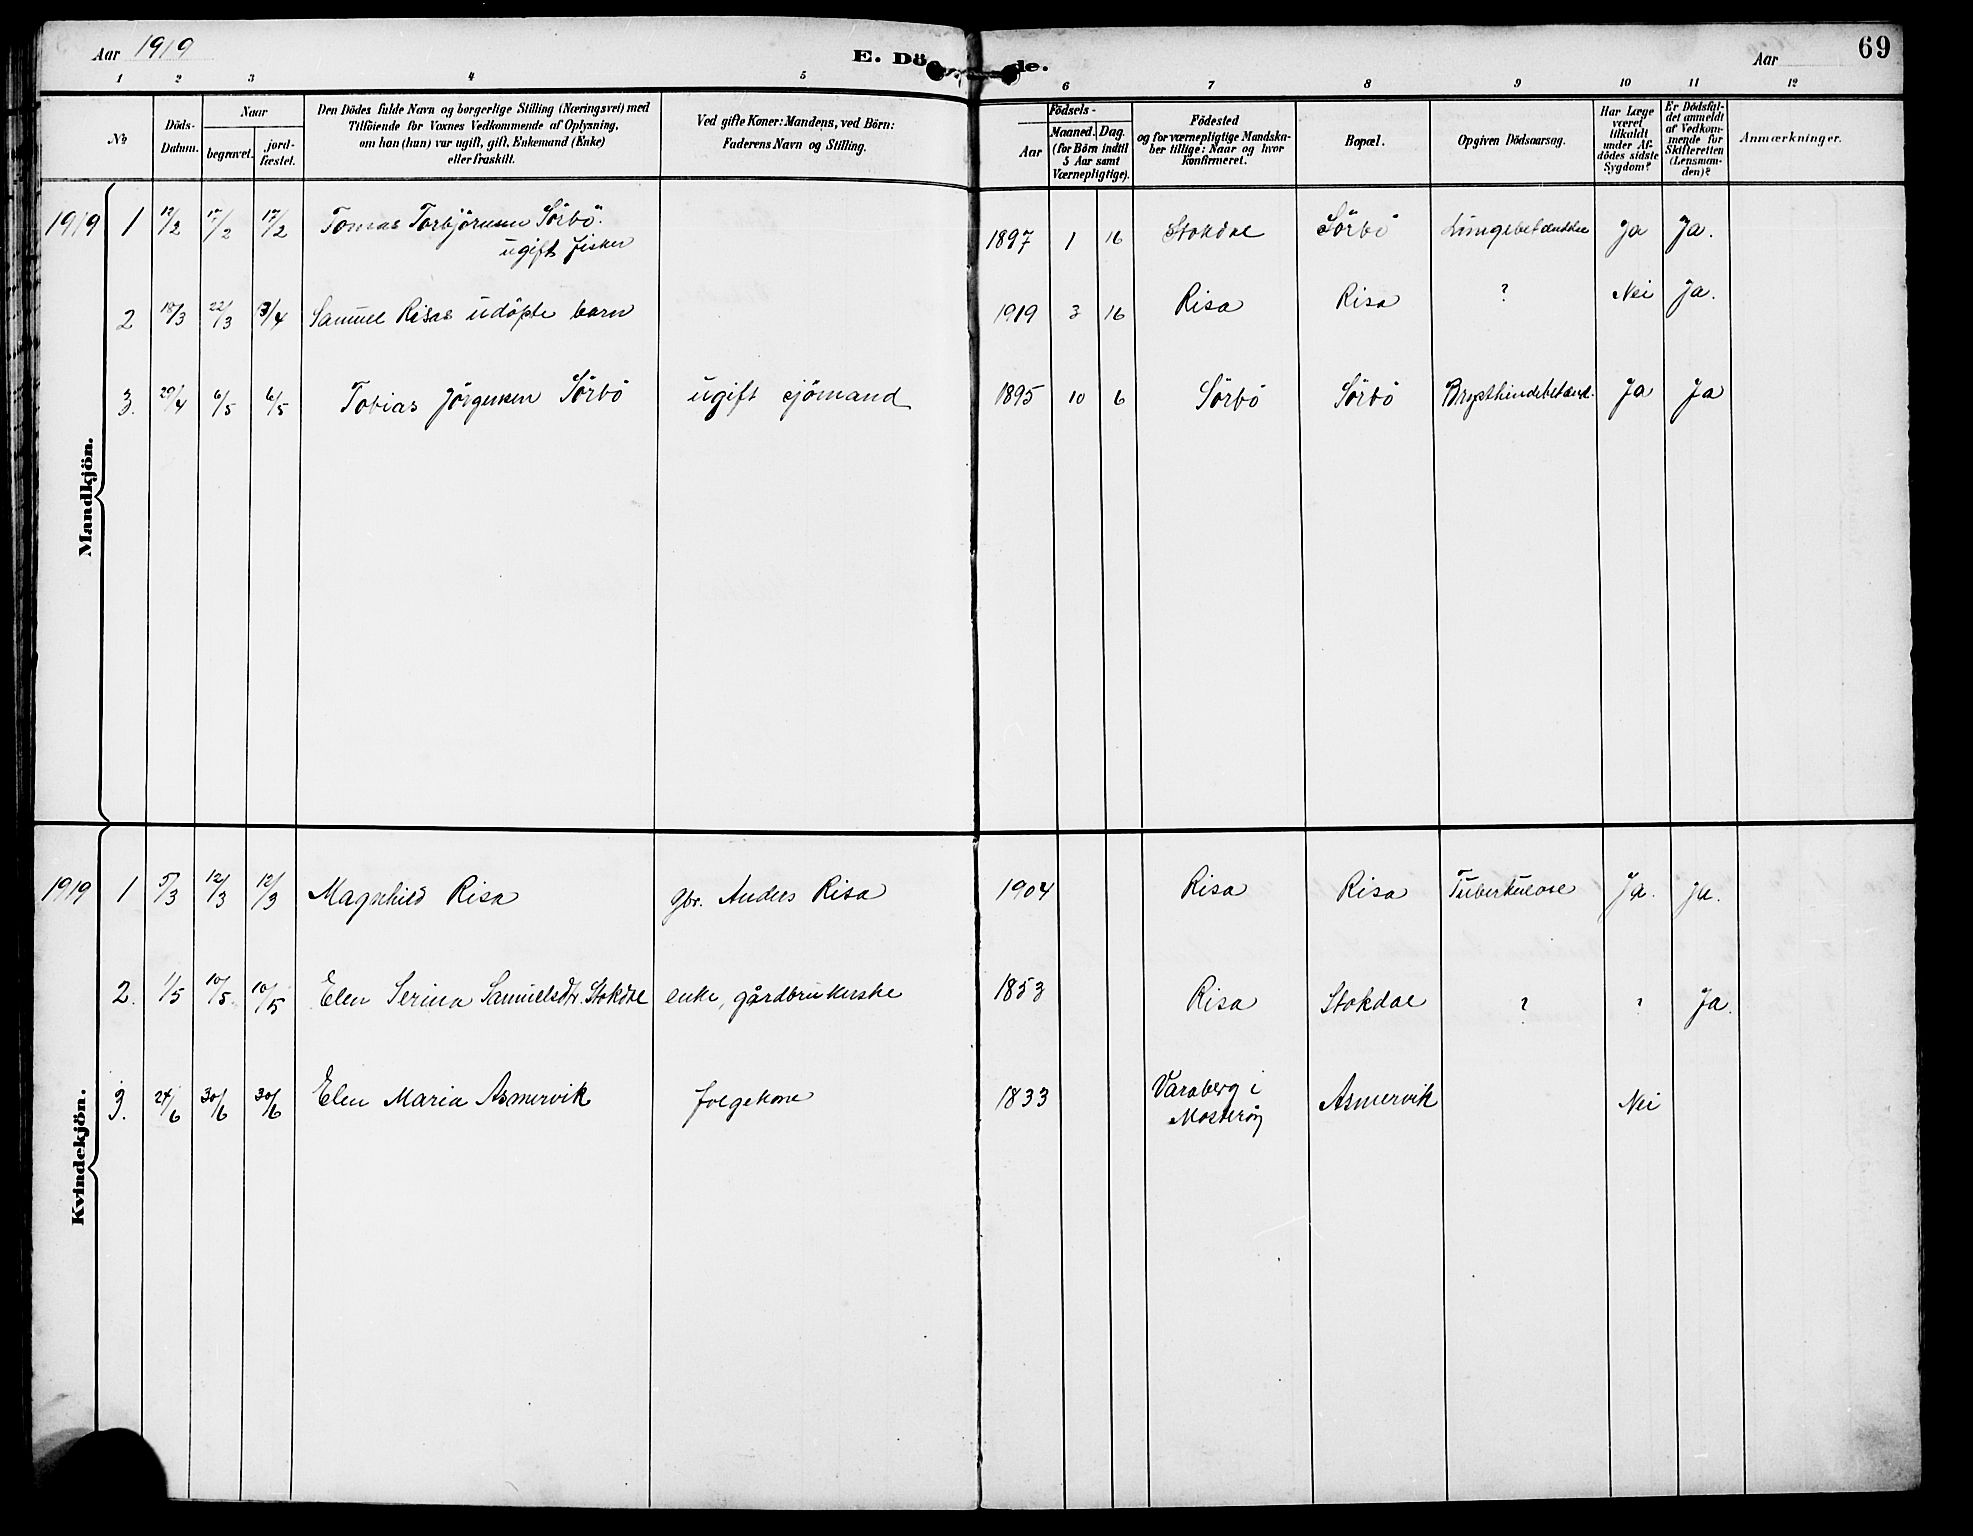 Aar 1919
E. Dö de.
Aar
69
1 2 3 4 5 6 7 8 9 10 11 12
No
Döds-Datum.
Naar
begravet.
jord-fæstet.
Den Dödes fulde Navn og borgerlige Stilling (Næringsvei) med
Tilföiende for Voxnes Vedkommende af Oplysning,
om han (hun) var ugift, gift, Enkemand (Enke)
eller fraskilt.
Ved gifte Koner: Mandens, ved Börn:
Faderens Navn og Stilling.
Födsels-
Aar
Maaned. Dag.
(for Börn indtil
5 Aar samt
Værnepligtige).
Födested
og for værnepligtige Mandska-
ber tillige: Naar og hvor
konfirmeret.
Bopæl.
Opgiven Dödsaarsag.
Har Læge
været
tilkaldt
under Af-
dödes sidste
Sygdom?
Er Dödsfal-
det anmeldt
af Vedkom-
mende for
Skifteretten
(Lensman-
den)?
Anmærkninger.
Mandkjön.
1919 1 12/2 17/2 17/2 Tomas Torbjörnsen Sörbö. 1897 1 16 Stokdal Sörbö Lungebetændelse Ja Ja.
ugift fisker
2 18/3 22/3 3/4 Samuel Risas udöpte barn 1919 3 16 Risa Risa ? Nei Ja.
3. 29/4 6/5 6/5 Tobias Jörgensen Sörbö ugift sjömand 1895 10 6 Sörbö Sörbö Brysthindebetænd. Ja Ja
Kvindekjön.
1919 1 5/3 12/3 12/3 Magnhild Risa gbr. Anders Risa 1904 Risa Risa Tuberkulose Ja. Ja.
2. 1/5 10/5 10/5 Elen Serina Samuelsdtr. Stokdal enke, gårdbrukerske 1853 Risa Stokdal ? ? Ja.
3. 24/6 30/6 30/6 Elen Maria Asmervik folgekone 1833 Varaberg i Asmervik Nei
Mosterøy